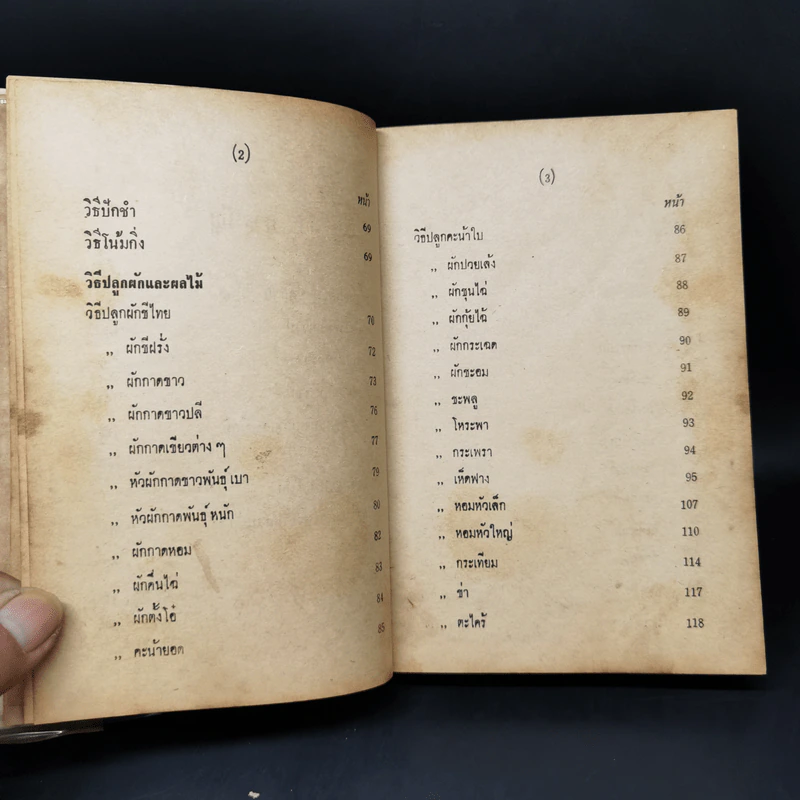 (2)
หน้า
วิธีปักชำ 69
วิธีโน้มกิ่ง 69
วิธีปลูกผักและผลไม้
วิธีปลูกผักชีไทย 70
,, ผักชีฝรั่ง 72
,, ผักกาดขาว 73
,, ผักกาดขาวปลี 76
,, ผักกาดเขียวต่าง ๆ 77
,, หัวผักกาดขาวพันธุ์เบา 79
,, หัวผักกาดพันธุ์หนัก 80
,, ผักกาดหอม 82
,, ผักคื่นไฉ่ 83
,, ผักตั้งโอ๋ 84
,, คะน้ายอด 85
(3)
หน้า
วิธีปลูกคะน้าใบ 86
,, ผักปวยเล้ง 87
,, ผักชุนไฉ่ 88
,, ผักกุ้ยไฉ้ 89
,, ผักกระเฉด 90
,, ผักชะอม 91
,, ชะพลู 92
,, โหระพา 93
,, กระเพรา 94
,, เห็ดฟาง 95
,, หอมหัวเล็ก 107
,, หอมหัวใหญ่ 110
,, กระเทียม 114
,, ข่า 117
,, ตะไคร้ 118